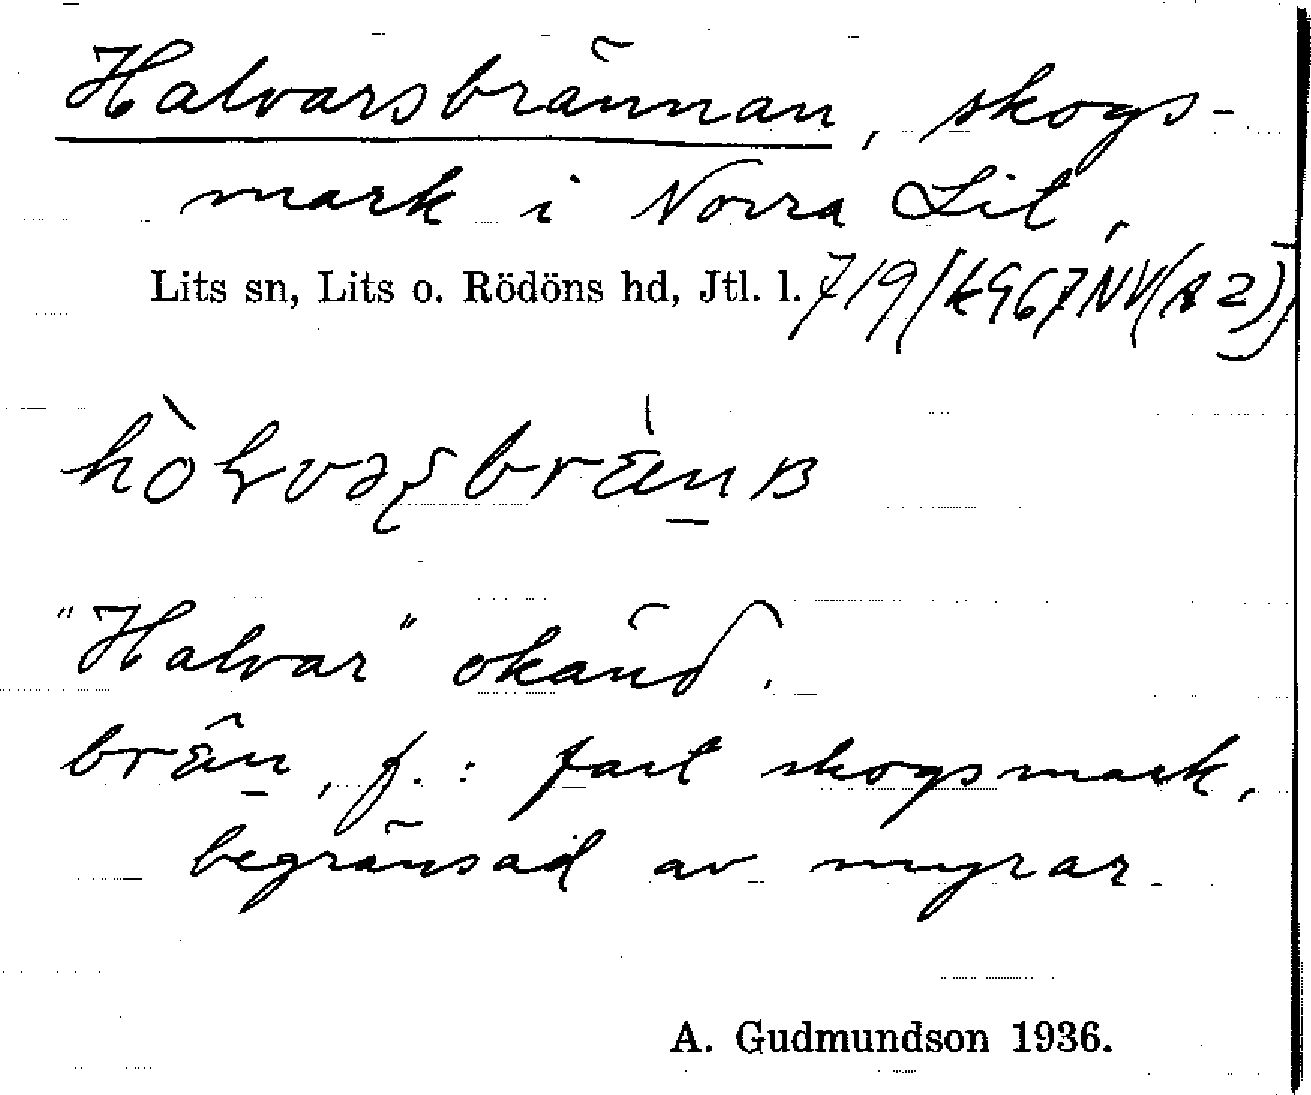 Halvarsbrännan, skogs-
mark i Norra Lit,
Lits sn, Lits o. Rödöns hd, Jtl. l. 719
"Halvar" okänd.
brä̂n̲, f.: fast skogsmark,
begränsad av myrar.
A. Gudmundson 1936.